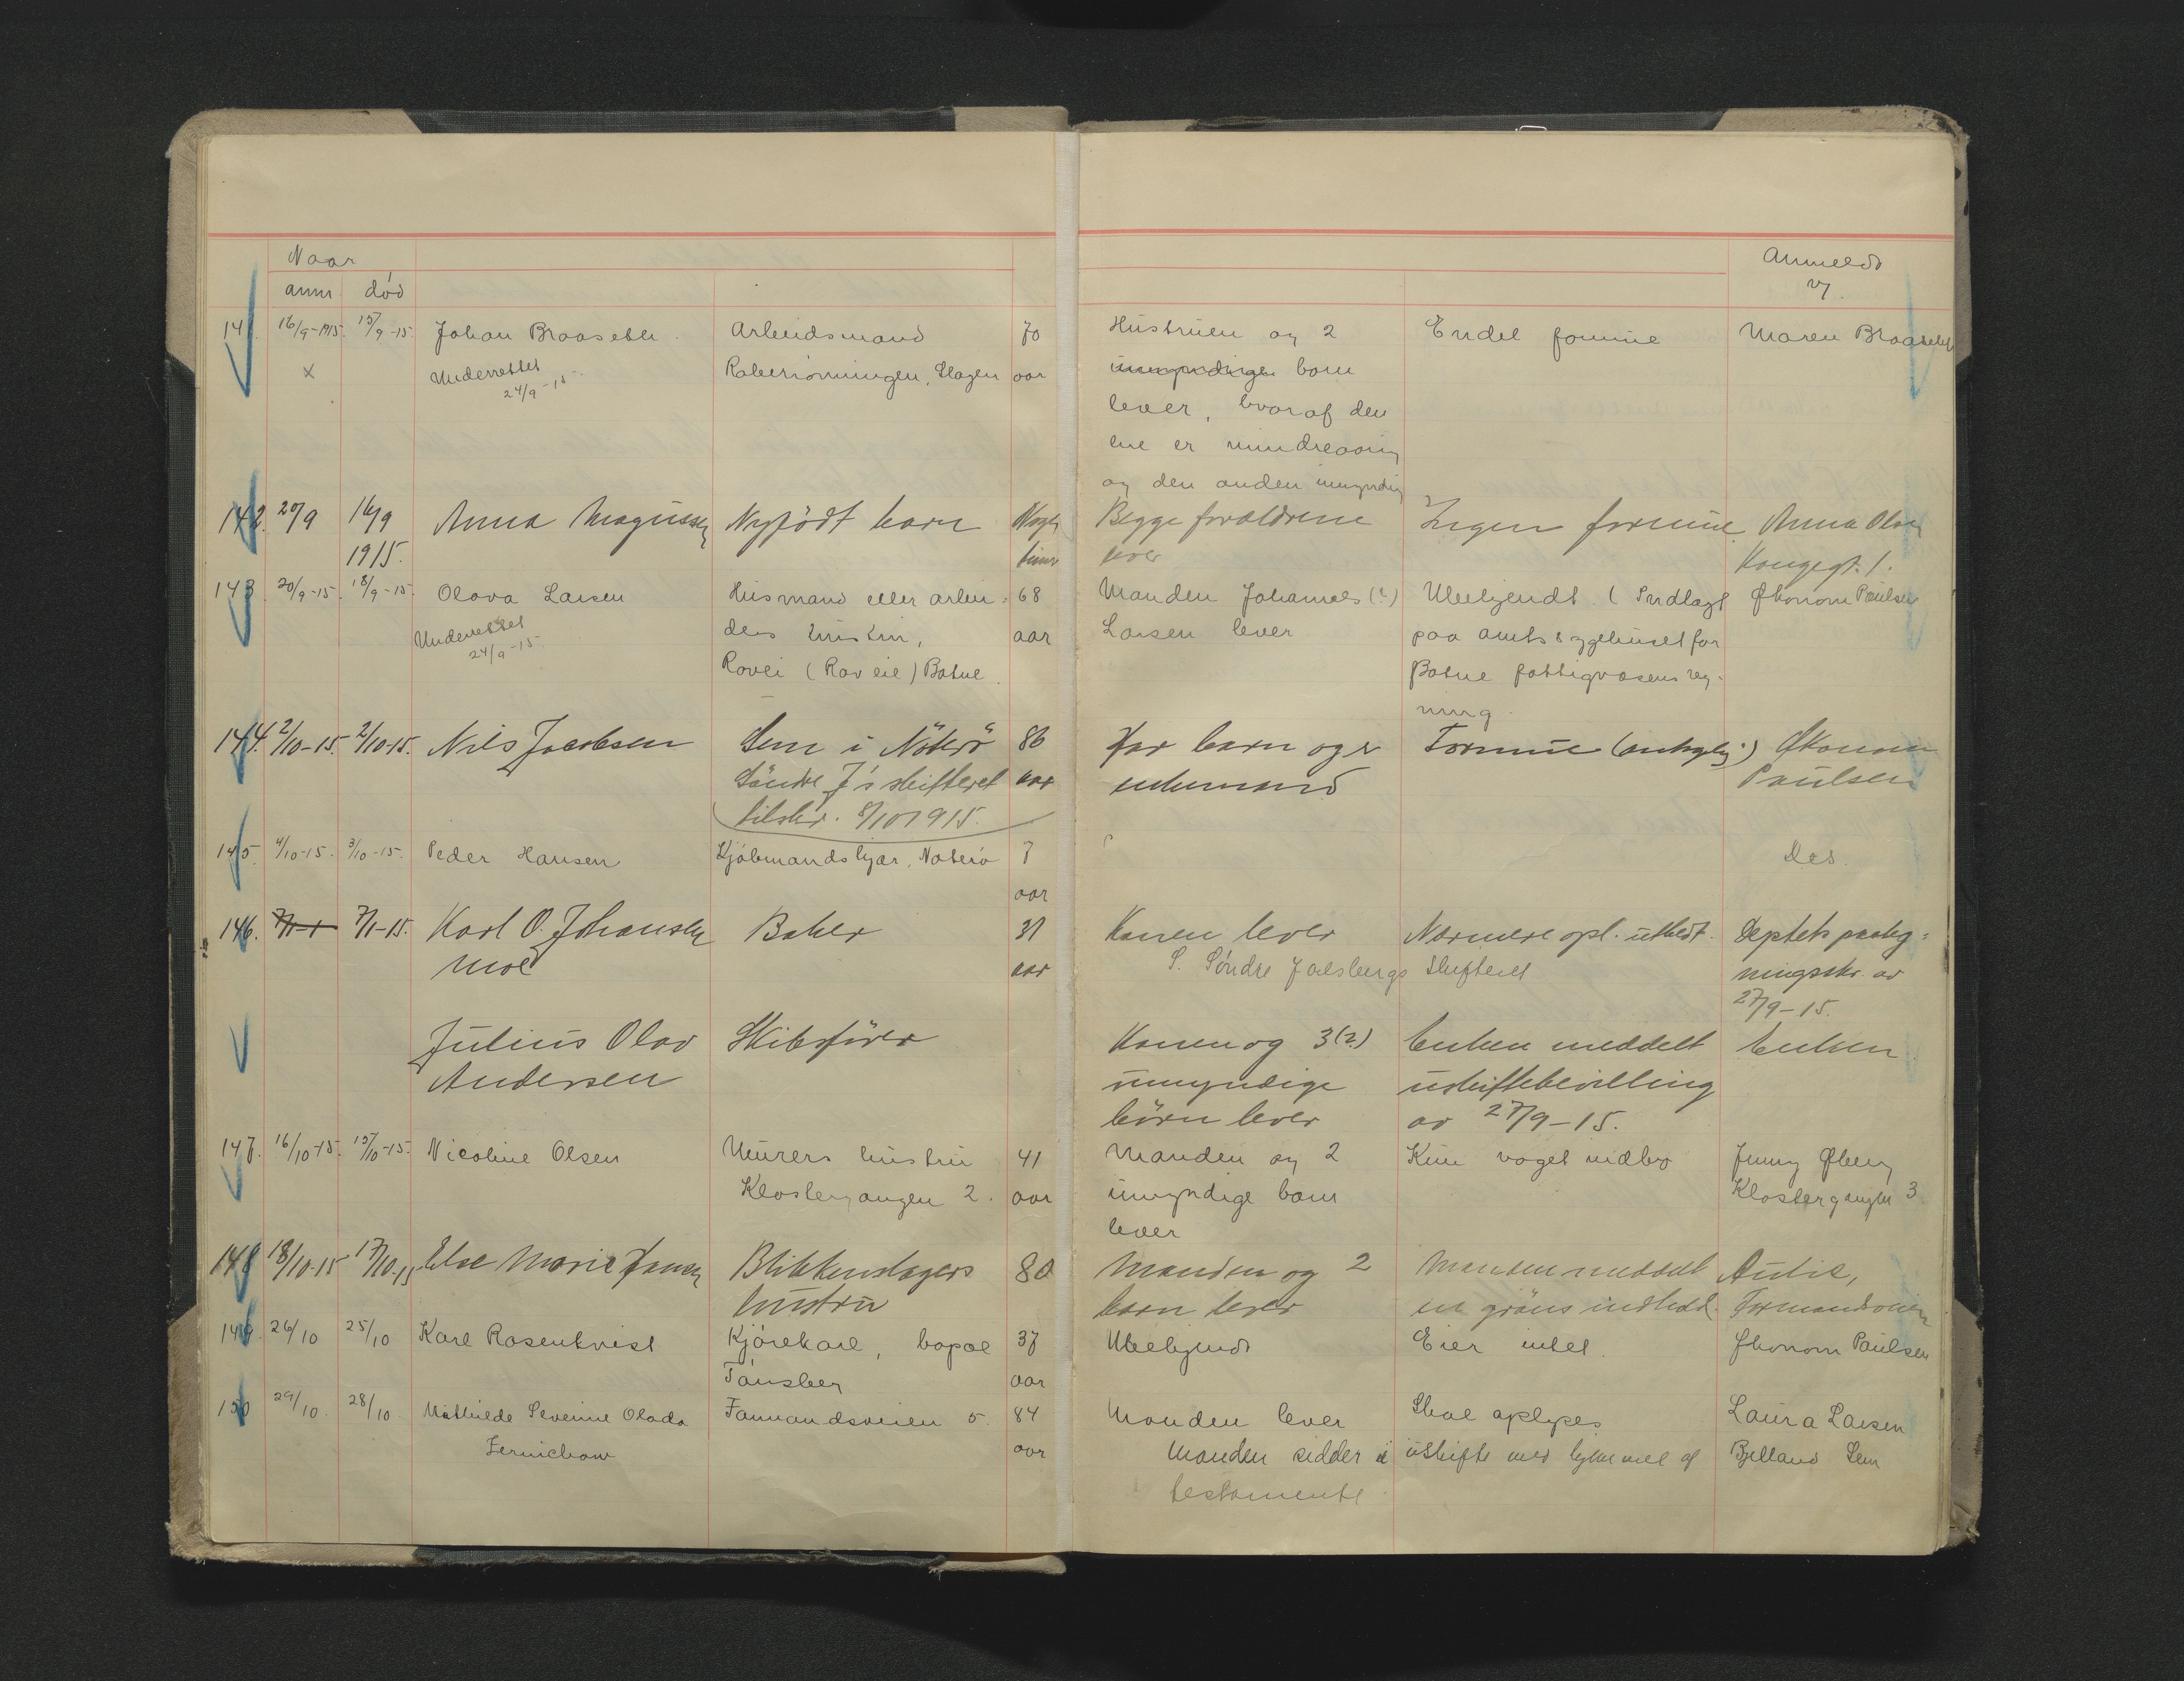 Naar
Anmeldt
anm. død
av
141. 16/9-1915. 15/9-15. Johan Braaseth. Arbeidsmand 70 Hustruen og 2 Endel formue Maren Braaseth
x Underrettet Slagen aar umyndige barn
24/9-15. lever, hvoraf den
ene er mindreaarig
og den anden umyndig
142. 20/9 16/9 Anna Magnussen Nyfödt barn Nogle Begge forældrene Ingen formue. Anna Olsen
1915. timer lever Kongegt. 1.
143. 20/9-15. 18/9-15. Olava Larsen Husmand eller arbei- 68 Manden Johannes (?) Ubekjendt. (Indlagt Økonom Paulsen
Underrettet ders hustru, aar Larsen lever paa amtssygehuset for
24/9-15. Rovei (Rav eie) Botne. Botne fattigvæsens reg-
ning.
144. 2/10-15. 2/10-15. Nils Jacobsen Sem i Nöterö 86 Har barn og er Formue (antagelig) Økonom
Söndre J's skifteret aar enkemand Paulsen
tilskr. 8/10 1915.
145. 4/10-15. 3/10-15. Peder Hansen Kjøbmandskjær, Nøterø 7 ? Des.
aar
146. 7/1-15. Karl O. Johansen Baker 31 Konen lever Nærmere opl. utbedt. Deptets paateg-
Moe aar S. Søndre Jarlsbergs Skifteret ningsskr. av
27/9-15.
Julius Olav Skibsförer Konen og 3(?) Enken meddelt Enken
Andersen umyndige uskiftebevilling
börn lever av 27/9-15.
147. 16/10-15. 15/10-15. Nicoline Olsen Murers hustru 41 Manden og 2 Kun noget indbo Jenny Øberg
Klostergangen 2. aar umyndige barn Klostergangen 3
lever
148 18/10-15 17/10-15 Else Marie Jansen Blikkenslagers 80 Manden og 2 Manden meddelt
hustru barn lever
149. 26/10 25/10 Karl Rosenkvist Kjørekarl, bopæl 37 Ubekjendt Eier intet. Økonom Paulsen
Tønsberg aar
150 29/10. 28/10 Mathilde Severine Olada Farmandsveien 5. 84 Manden lever Skal oplyses Laura Larsen
aar Manden sidder i uskifte med hjemmel af Bjelland Sem
testamente